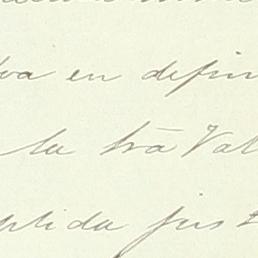 va en defin
la trā Val
ptida just